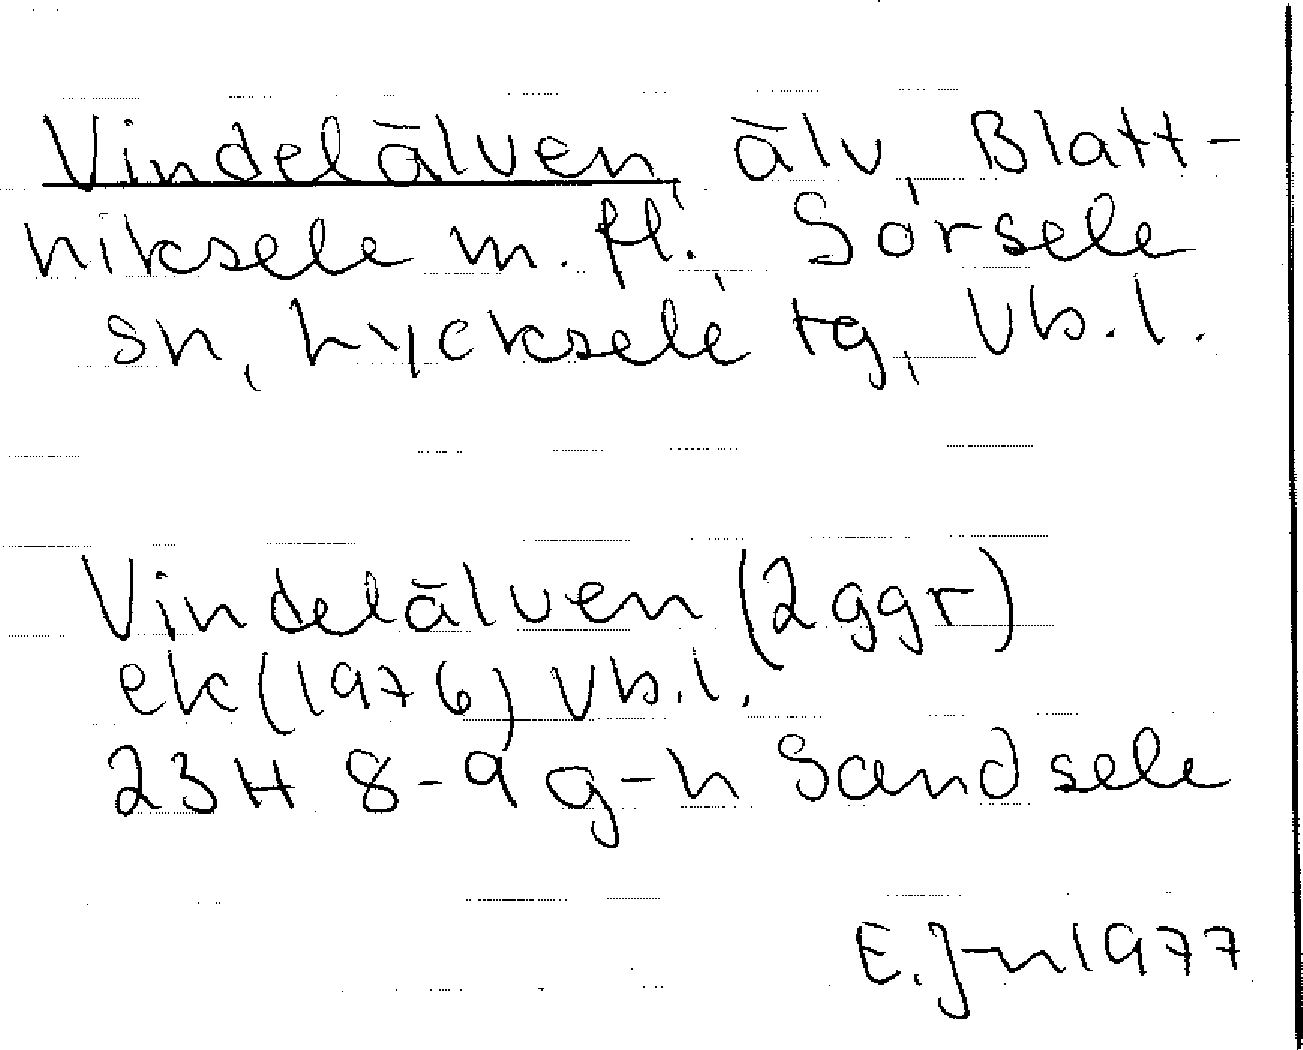 Vindelälven, älv, Blatt-
niksele m. fl., Sorsele
sn, Lycksele tg, Vb. l.
Vindelälven (2 ggr)
ek (1976) Vb. l.
23H 8-9 g-h Sandsele
E. J-n 1977